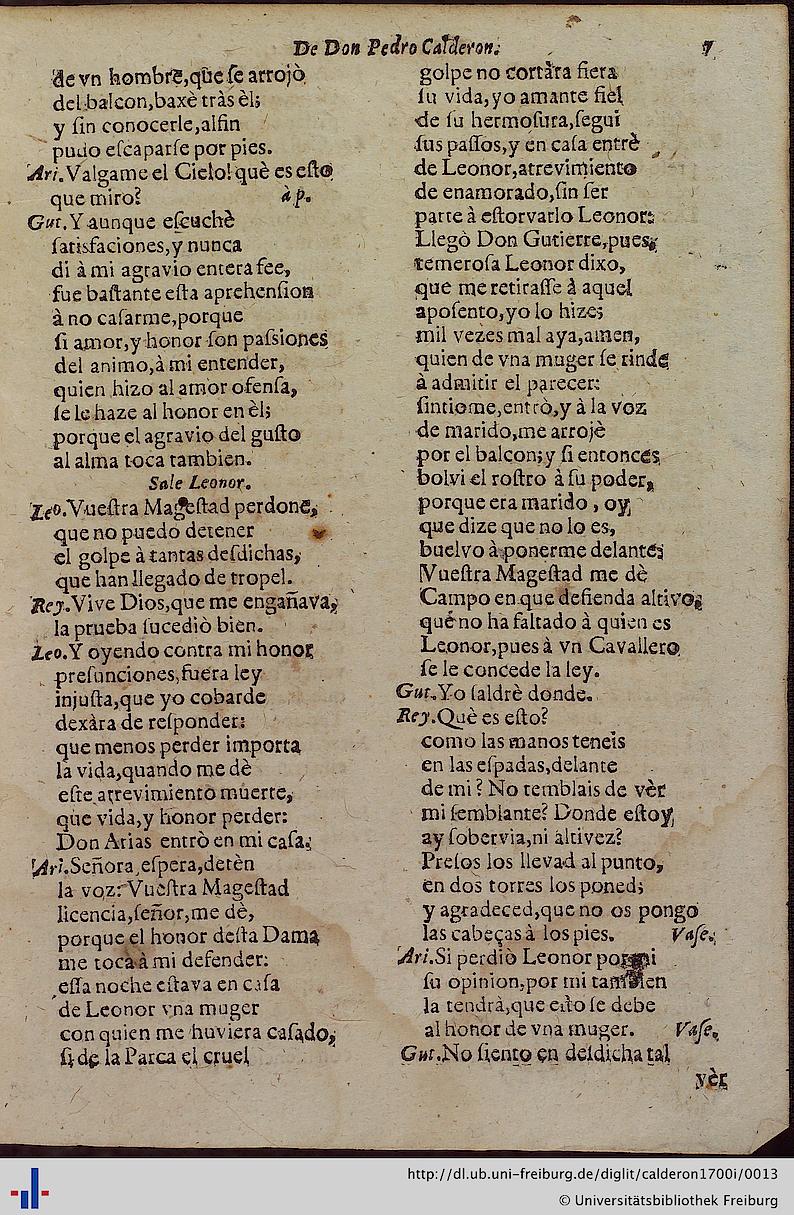 De Don Pedro Calderon.
7
de vn hombre,que ſe arrojò
del balcon,baxè tràs èl;
y ſin conocerle,alfin
pudo eſcaparſe por pies.
Ari.Valgame el Cielo! què es eſto
que miro? à p.
Gut.Y aunque eſcuchè
ſatisfaciones,y nunca
di à mi agravio entera fee,
fue baſtante eſta aprehenſion
à no caſarme,porque
ſi amor,y honor ſon paſsiones
del animo,à mi entender,
quien hizo al amor ofenſa,
ſe le haze al honor en èl;
porque el agravio del guſto
al alma toca tambien.
Sale Leonor.
Leo.Vueſtra Mageſtad perdone,
que no puedo detener
el golpe à tantas deſdichas,
que han llegado de tropel.
Rey.Vive Dios,que me engañava,
la prueba ſucediò bien.
Leo.Y oyendo contra mi honor
preſunciones,fuera ley
injuſta,que yo cobarde
dexàra de reſponder:
que menos perder importa
la vida,quando me dè
eſte atrevimiento muerte,
que vida,y honor perder:
Don Arias entrò en mi caſa.
Ari.Señora,eſpera,detèn
la voz: Vueſtra Mageſtad
licencia,ſeñor,me dè,
porque el honor deſta Dama
me toca à mi defender:
eſſa noche eſtava en caſa
de Leonor vna muger
con quien me huviera caſado,
ſi de la Parca el cruel
golpe no cortàra fiera
ſu vida,yo amante fiel
de ſu hermoſura,ſegui
ſus paſſos,y en caſa entrè
de Leonor,atrevimiento
de enamorado,ſin ſer
parte à eſtorvarlo Leonor:
Llegò Don Gutierre,pues,
temeroſa Leonor dixo,
que me retiraſſe à aquel
apoſento,yo lo hize;
mil vezes mal aya,amen,
quien de vna muger ſe rinde
à admitir el parecer:
ſintiome,entrò,y à la voz
de marido,me arrojè
por el balcon;y ſi entonces
bolvi el roſtro à ſu poder,
porque era marido , oy
que dize que no lo es,
buelvo à ponerme delante;
Vueſtra Mageſtad me dè
Campo en que defienda altivo,
què no ha faltado à quien es
Leonor,pues à vn Cavallero
ſe le concede la ley.
Gut.Yo ſaldrè donde.
Rey.Què es eſto?
como las manos teneis
en las eſpadas,delante
de mi? No temblais de vèr
mi ſemblante? Donde eſtoy
ay ſobervia,ni altivez?
Preſos los llevad al punto,
en dos torres los poned;
y agradeced,que no os pongo
las cabeças à los pies. Vaſe.
Ari.Si perdiò Leonor por mi
ſu opinion,por mi tambien
la tendrà,que eſto ſe debe
al honor de vna muger. Vaſe.
Gut.No ſiento en deſdicha tal
vèr
http://dl.ub.uni-freiburg.de/diglit/calderon1700i/0013
© Universitätsbibliothek Freiburg